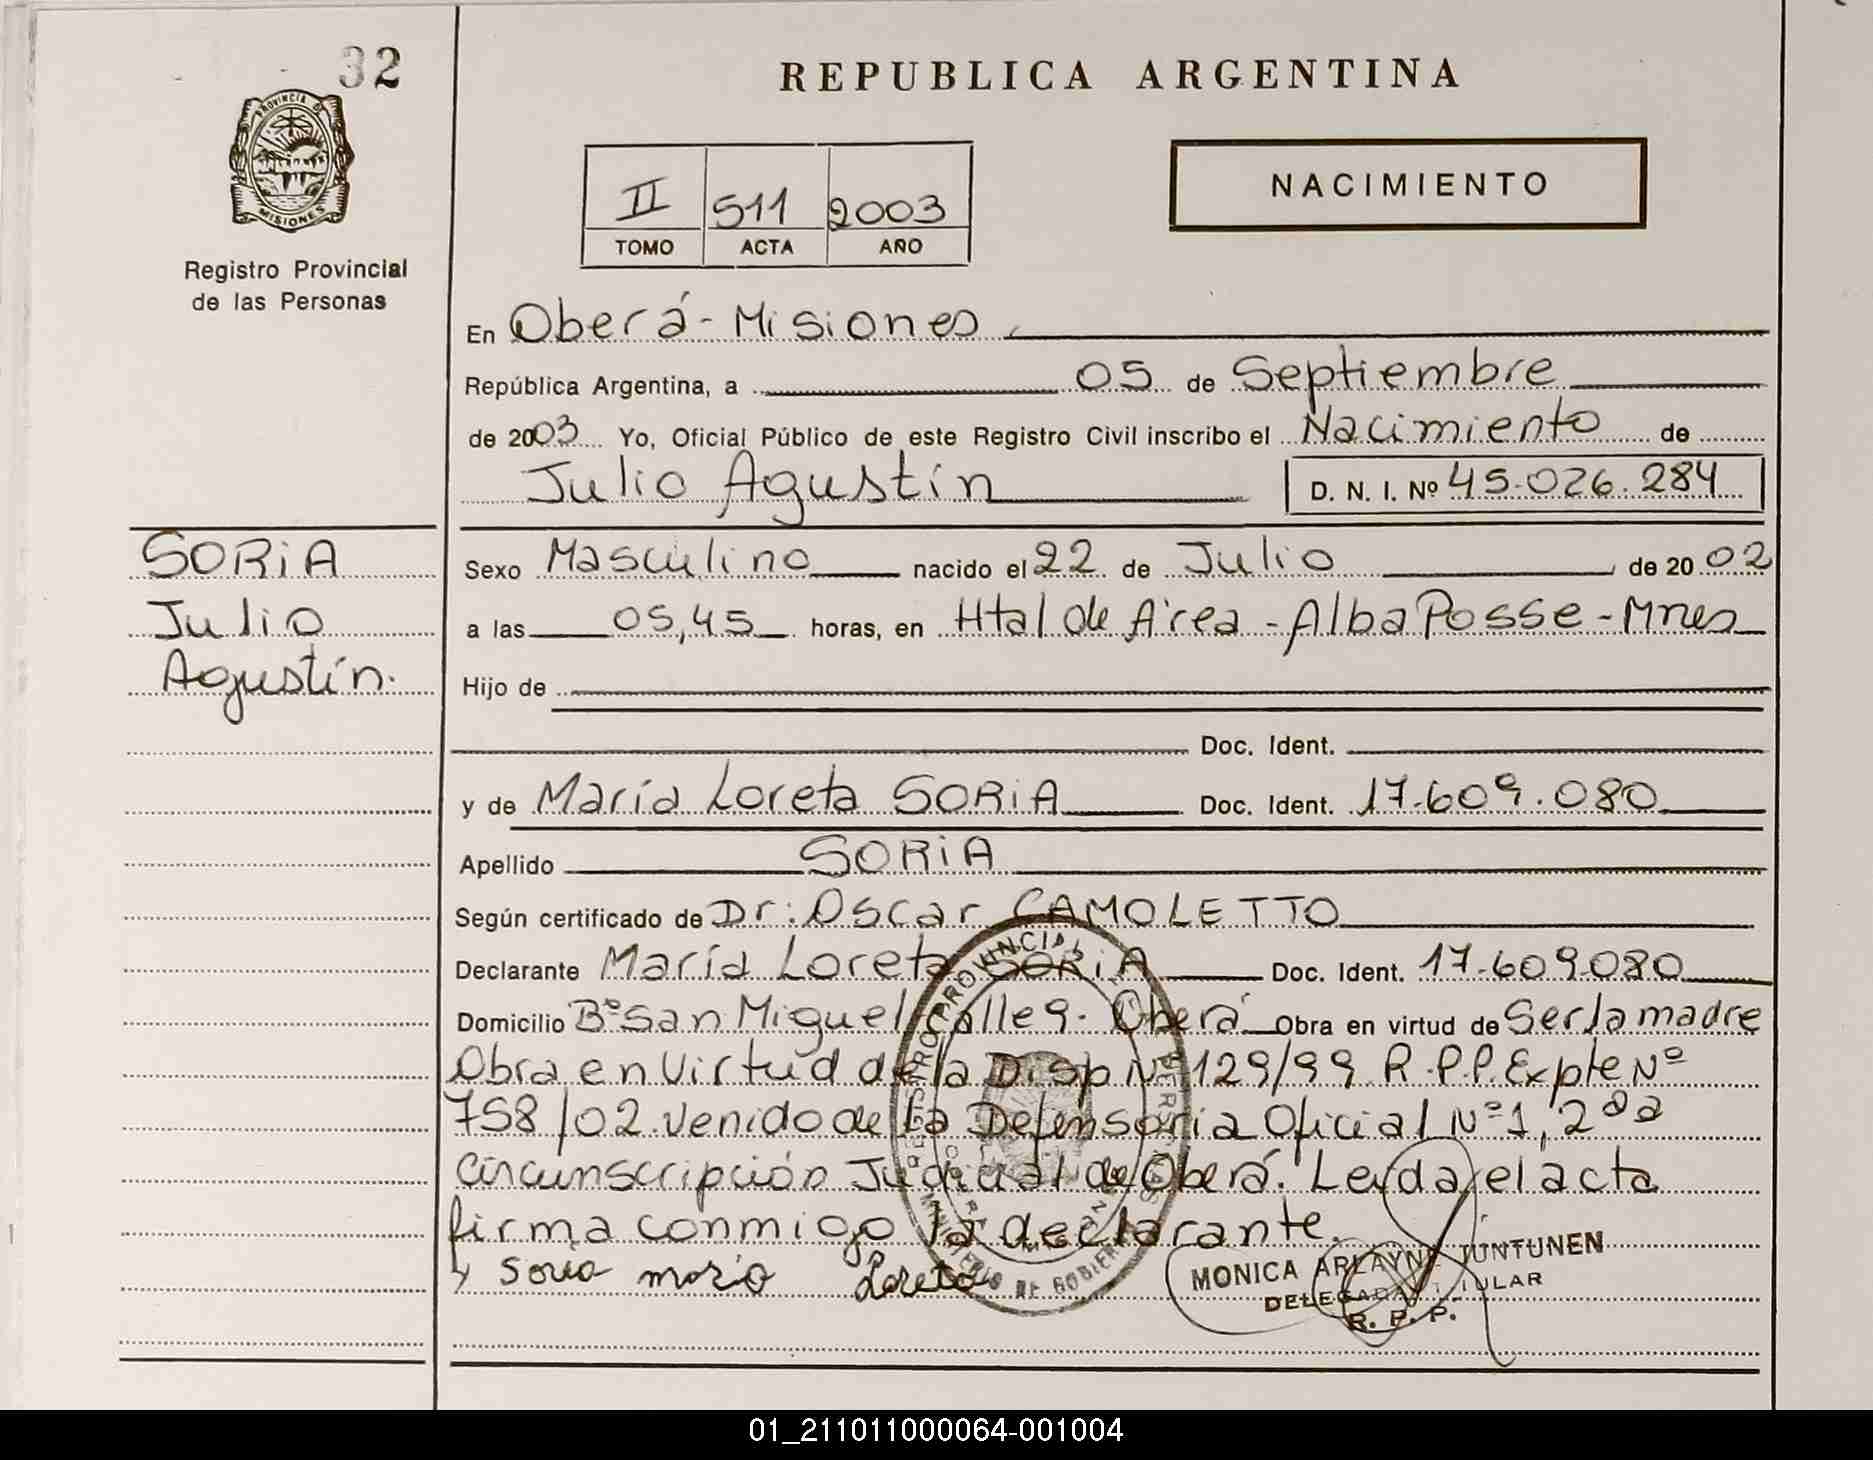 32
PROVINCIA DE
MISIONES
Registro Provincial
de las Personas
SORiA
Julio
Agustín.
REPUBLICA ARGENTINA
II 511 2003
TOMO ACTA AÑO
NACIMIENTO
En Oberá - Misiones
República Argentina, a 05 de Septiembre
de 2003 Yo, Oficial Público de este Registro Civil inscribo el Nacimiento de
Julio Agustín D. N. I. Nº 45.026.284
Sexo Masculino nacido el 22 de Julio de 20 02
a las 05,45 horas, en Htal de Area - Alba Posse - Mnes
Hijo de
Doc. Ident.
y de María Loreta SORiA Doc. Ident. 17.609.080
Apellido SORiA
Según certificado de Dr: Oscar CAMOLETTO
Declarante María Loreta SORiA Doc. Ident. 17.609.080
Domicilio Bº San Miguel calle 9. Oberá Obra en virtud de Ser la madre
Obra en Virtud de la Disp Nº 129/99 R.P.P. Expte Nº
758/02 venido de la Defensoria Oficial Nº 1, 2da
Circunscripción Judicial de Oberá. Leída el acta
firma conmigo la declarante.
Soria María Loreta
MONICA ARLAYNE JUNTUNEN
DELEGADA TITULAR
R. P. P.
01_211011000064-001004